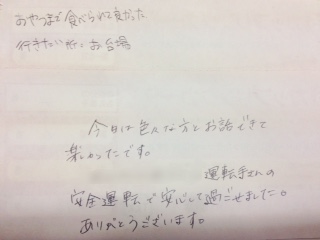 おやつまで食べられて良かった
行きたい所：お台場
今日は色々な方とお話できて
楽しかったです。
運転手さんの
安全運転で安心して過ごせました。
ありがとうございます。